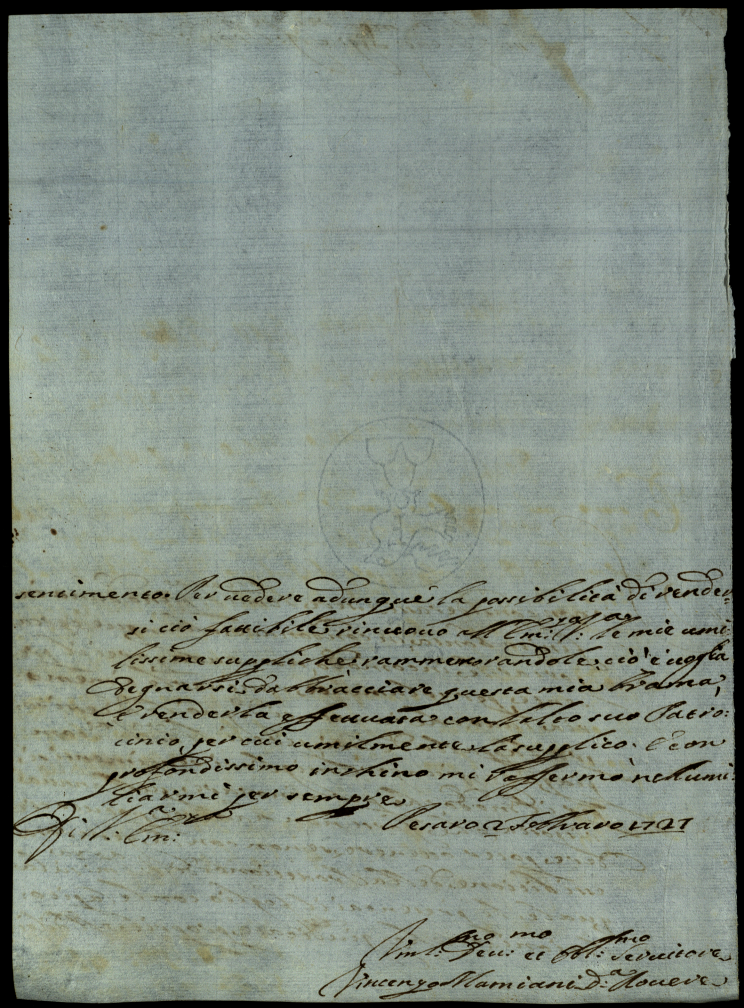 sentimento. Per vedere adunque la possibilità di render-
si ciò fattibile rinuovo all'Em:za V:ra le mie umi:
lissime suppliche rammemorandole, ciò è voglia
degnarsi d'abbracciare questa mia brama,
e renderla effettuata con l'alto suo Patro:
cinio, per cui umilmente la supplico. E con
profondissimo inchino mi raffermo nell'umi:
liarmi per sempre
Di V:ra Em:za
Pesaro 2 Febbraro 1727
Uml:mo Dev:mo et Obl:mo Servitore
Vincenzo Mamiani d:a Rovere